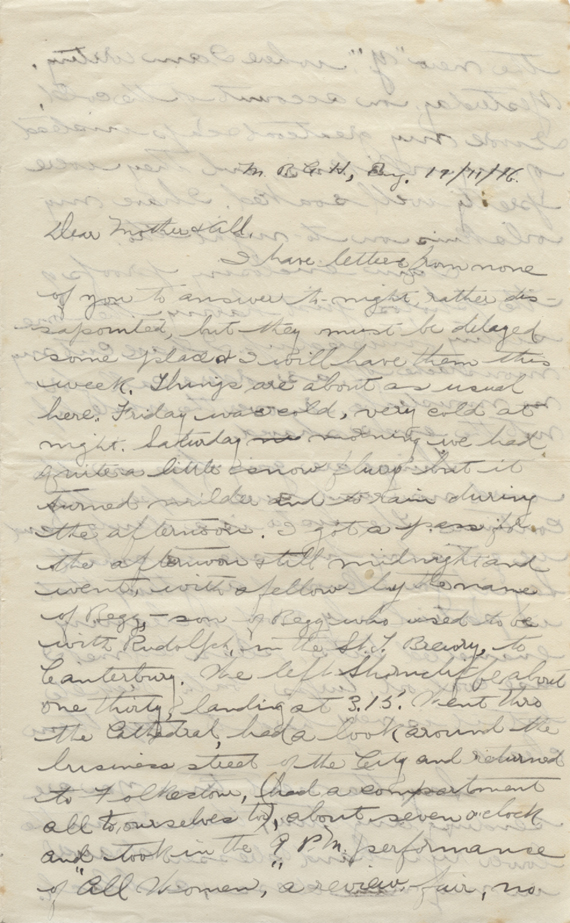 M. B. G. H., Eng. 17/12/16.
Dear Mother & all,
I have letters from none
of you to answer to-night, rather dis-
sapointed, but they must be delayed
some place & I will have them this
week. Things are about as usual
here. Friday was cold, very cold at
night. Saturday morning we had
quite a little snow flurry but it
turned milder and to rain during
the afternoon. I got a pass in
the afternoon & till midnight and
went, with a fellow by the name
of Begg, - son of Begg who used to be
with Rudolph, in the St. T. Brewry, to
Canterbury. We left Shorncliffe about
one thirty, landing at 3.15. Went thro
the Cathedral, had a look around the
business street of the City and returned
to Folkestone, (had a compartment
all to ourselves to), about seven o'clock
and took in the 9 P.M. performance
of "All Women", a review - fair, no